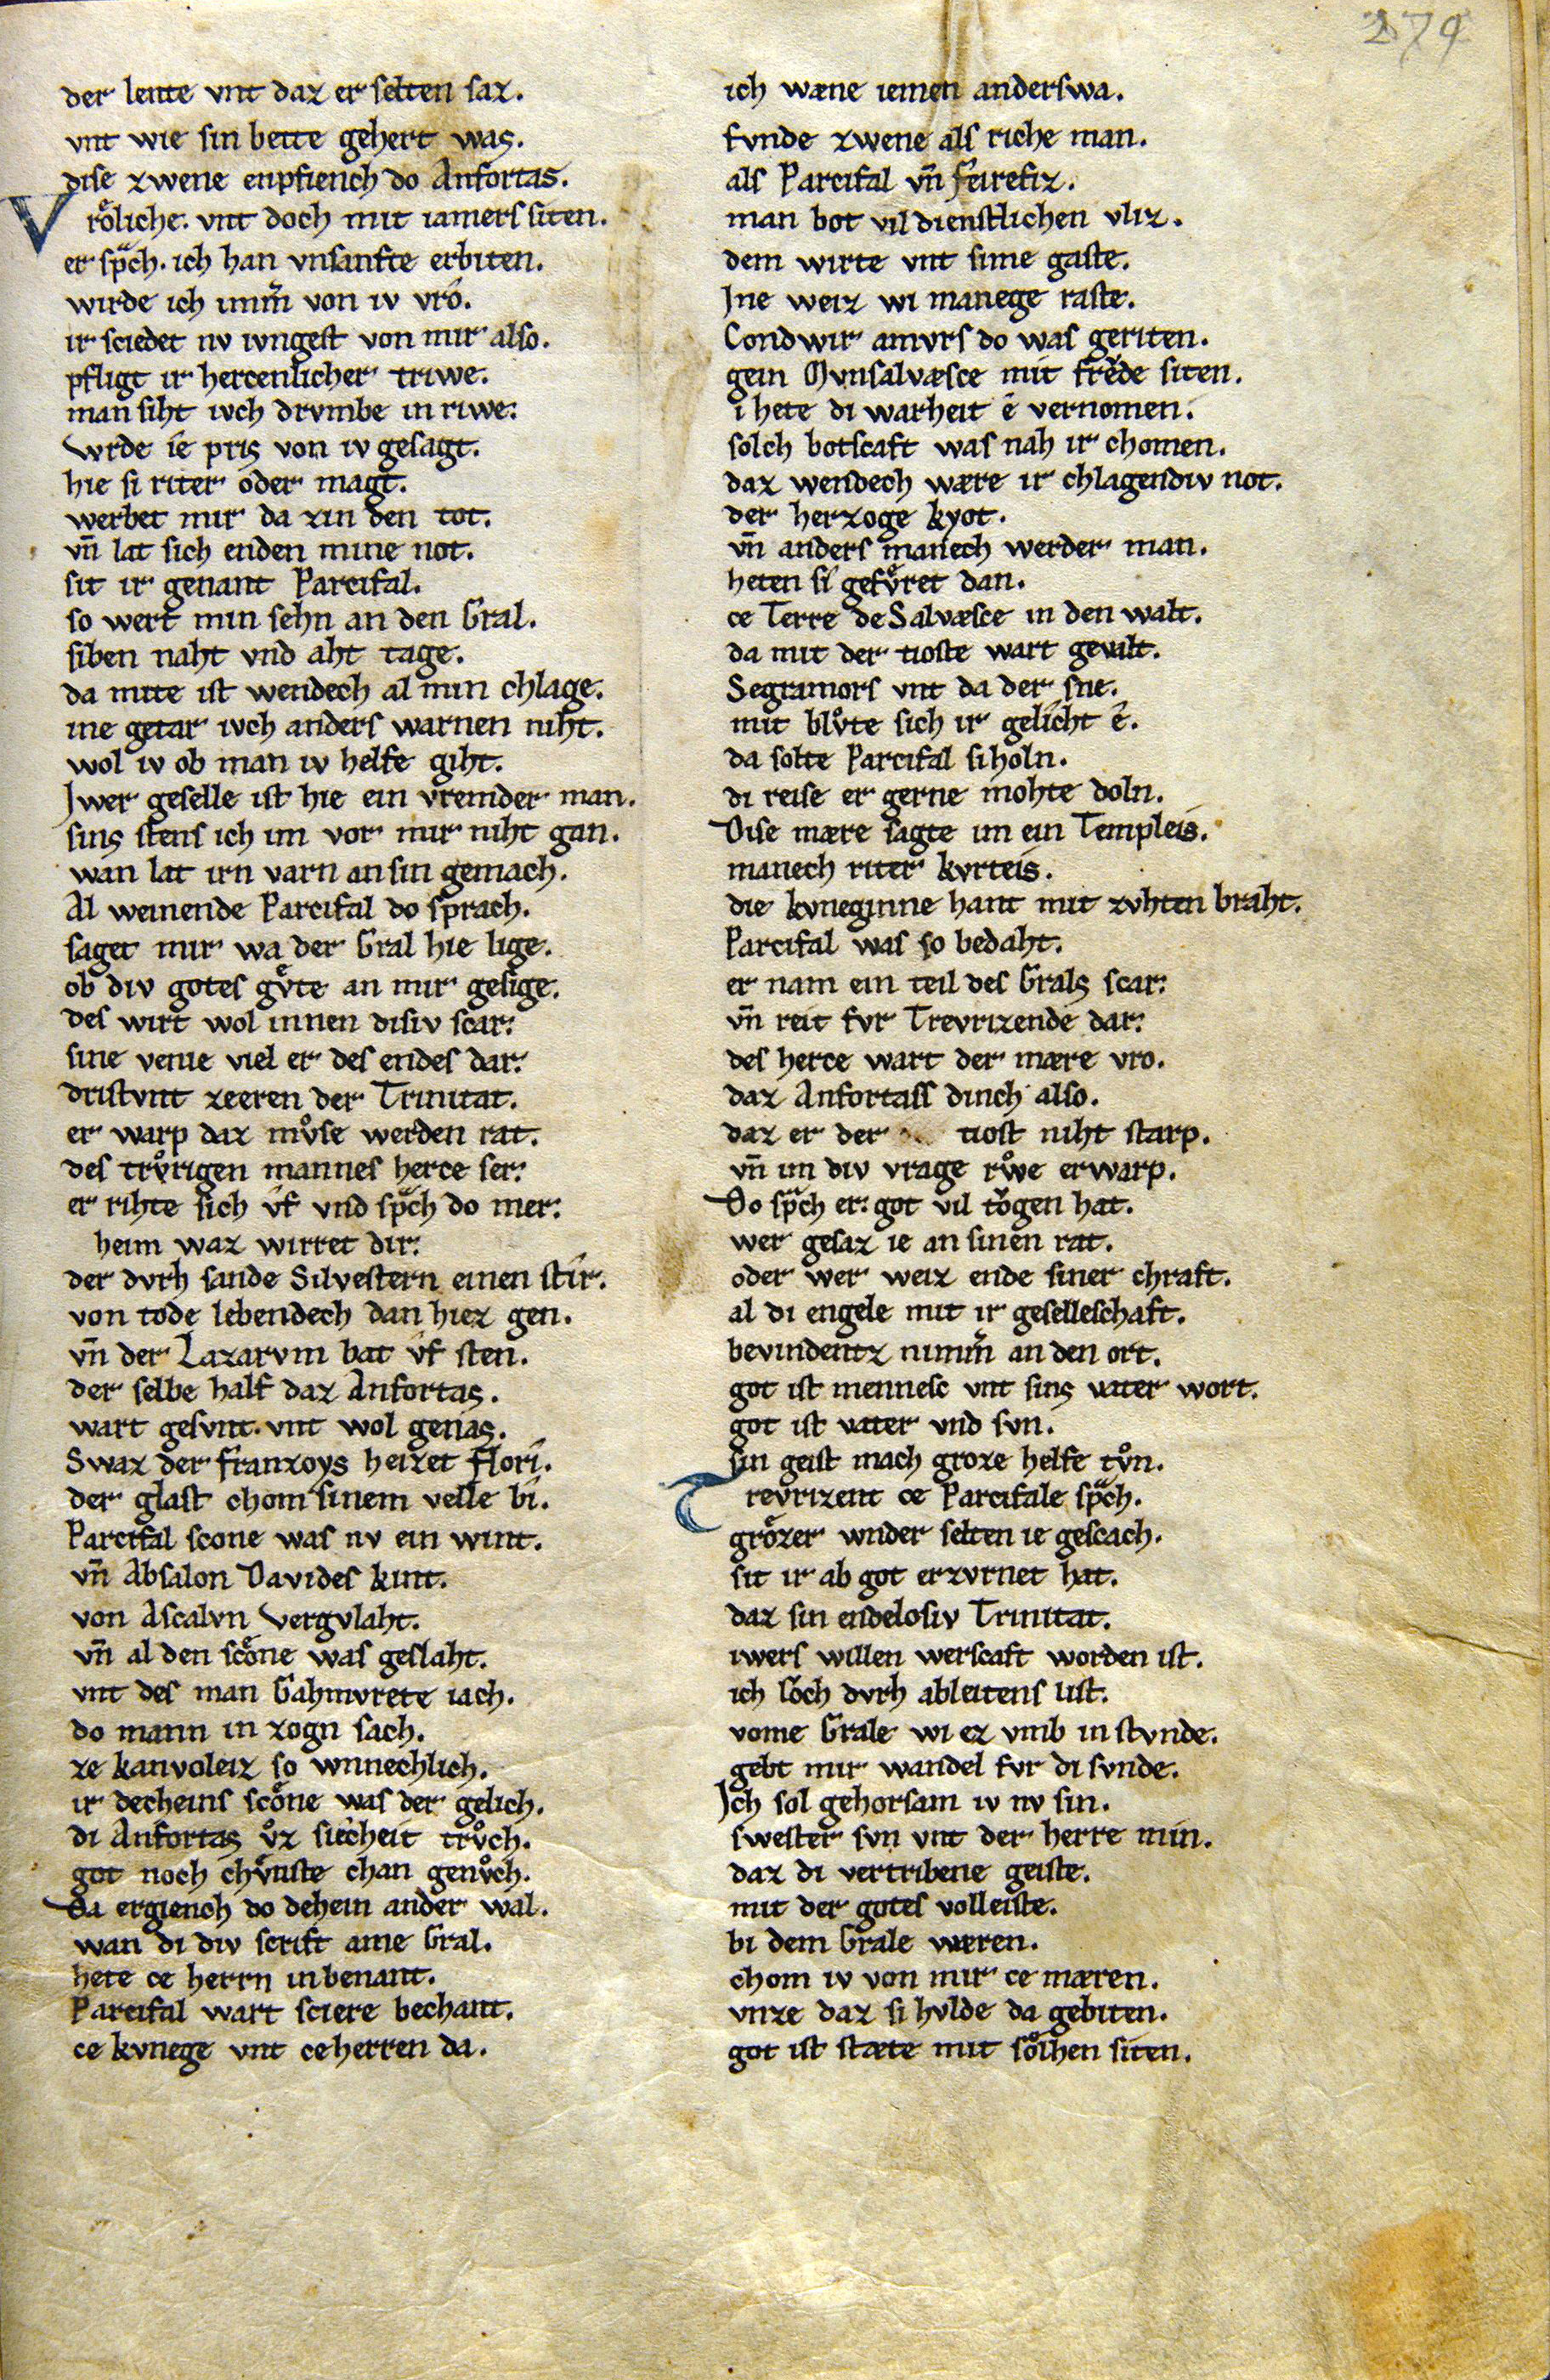 279
der leute vnt daz er selten saz.
vnt wie sin bette gehert was.
dise zwene enpfiench do Anfortas.
Vrͤoliche. vnt doch mit iamers siten.
er spͣch. ich han vnsanfte erbiten.
wirde ich im̄ von iv vro.
ir sciedet nv ivngest von mir also.
pfligt ir hercenlicher triwe.
man siht ivch drvmbe in riwe.
wrde ie pris von iv gesagt.
hie si riter oder magt.
werbet mir da zin den tot.
vn̄ lat sich enden mine not.
sit ir genant Parcifal.
so wert min sehn an den Gral.
siben naht vnd aht tage.
da mite ist wendech al min chlage.
ine getar ivch anders warnen niht.
wol iv ob man iv helfe giht.
Iwer geselle ist hie ein vremder man.
sins stens ich im vor mir niht gan.
wan lat irn varn an sin gemach.
Al weinende Parcifal do sprach.
saget mir wa der Gral hie lige.
ob div gotes gvͤte an mir gesige.
des wirt wol innen disiv scar.
sine venie viel er des endes dar.
dristvnt zeeren der Trinitat.
er warp daz mvͦse werden rat.
des trvͦrigen mannes herce ser.
er rihte sich vf vnd spͣch do mer.
heim waz wirret dir.
der dvrh sande Silvestern einen stir.
von tode lebendech dan hiez gen.
vn̄ der Lazarvm bat vf sten.
der selbe half daz Anfortas.
wart gesvnt. vnt wol genas.
Swaz der franzoys heizet flori.
der glast chom sinem velle bi.
Parcifal scone was nv ein wint.
vn̄ Absalon Davides kint.
von Ascalvn Vergvlaht.
vn̄ al den scoͤne was geslaht.
vnt des man Gahmvrete iach.
do mann in zogn sach.
ze kanvoleiz so wnnechlich.
ir decheins scoͤne was der gelich.
di Anfortas vͦz siecheit trvͦch.
got noch chvͤnste chan genvͦch.
Da ergiench do dehein ander wal.
wan di div scrift ame Gral.
hete ce herrn in benant.
Parcifal wart sciere bechant.
ce kvnege vnt ce herren da.
ich wæne iemen anderswa.
fvnde zwene als riche man.
als Parcifal vn̄ feirefiz.
man bot vil dienstlichen vliz.
dem wirte vnt sime gaste.
Ine weiz wi manege raste.
Condwir amvrs do was geriten.
gein Mvnsalvæsce mit freͮde siten.
i hete di warheit e vernomen.
solch botscaft was nah ir chomen.
daz wendech wære ir chlagendiv not.
der herzoge kyot.
vn̄ anders manech werder man.
heten si gefvͤret dan.
ce Terre de Salvæsce in den walt.
da mit der tioste wart gevalt.
Segramors vnt da der sne.
mit blvͦte sich ir gelicht e.
da solte Parcifal si holn.
di reise er gerne mohte doln.
Dise mære sagte im ein Templeis.
manech riter kvrteis.
die kvneginne hant mit zvhten braht.
Parcifal was so bedaht.
er nam ein teil des Grals scar.
vn̄ reit fvr Trevrizende dar.
des herce wart der mære vro.
daz Anfortass dinch also.
daz er der tiost niht starp.
vn̄ im div vrage rvͦwe erwarp.
Do spͣch er. got vil toͮgen hat.
wer gesaz ie an sinen rat.
oder wer weiz ende siner chraft.
al di engele mit ir geselleschaft.
bevindentz nim̄ an den ort.
got ist mennesc vnt sins vater wort.
got ist vater vnd svn.
sin geist mach groze helfe tvͦn.
Trevrizent ce Parcifale spͣch.
groͤzer wnder selten ie gescach.
sit ir ab got erzvrnet hat.
daz sin endelosiv Trinitat.
iwers willen werscaft worden ist.
ich loch dvrh ableitens list.
vome Grale wi ez vmb in stvnde.
gebt mir wandel fvr di svnde.
Ich sol gehorsam iv nv sin.
swester svn vnt der herre min.
daz di vertribene geiste.
mit der gotes volleiste.
bi dem Grale wæren.
chom iv von mir ce mæren.
vnze daz si hvlde da gebiten.
got ist stæte mit solhen siten.